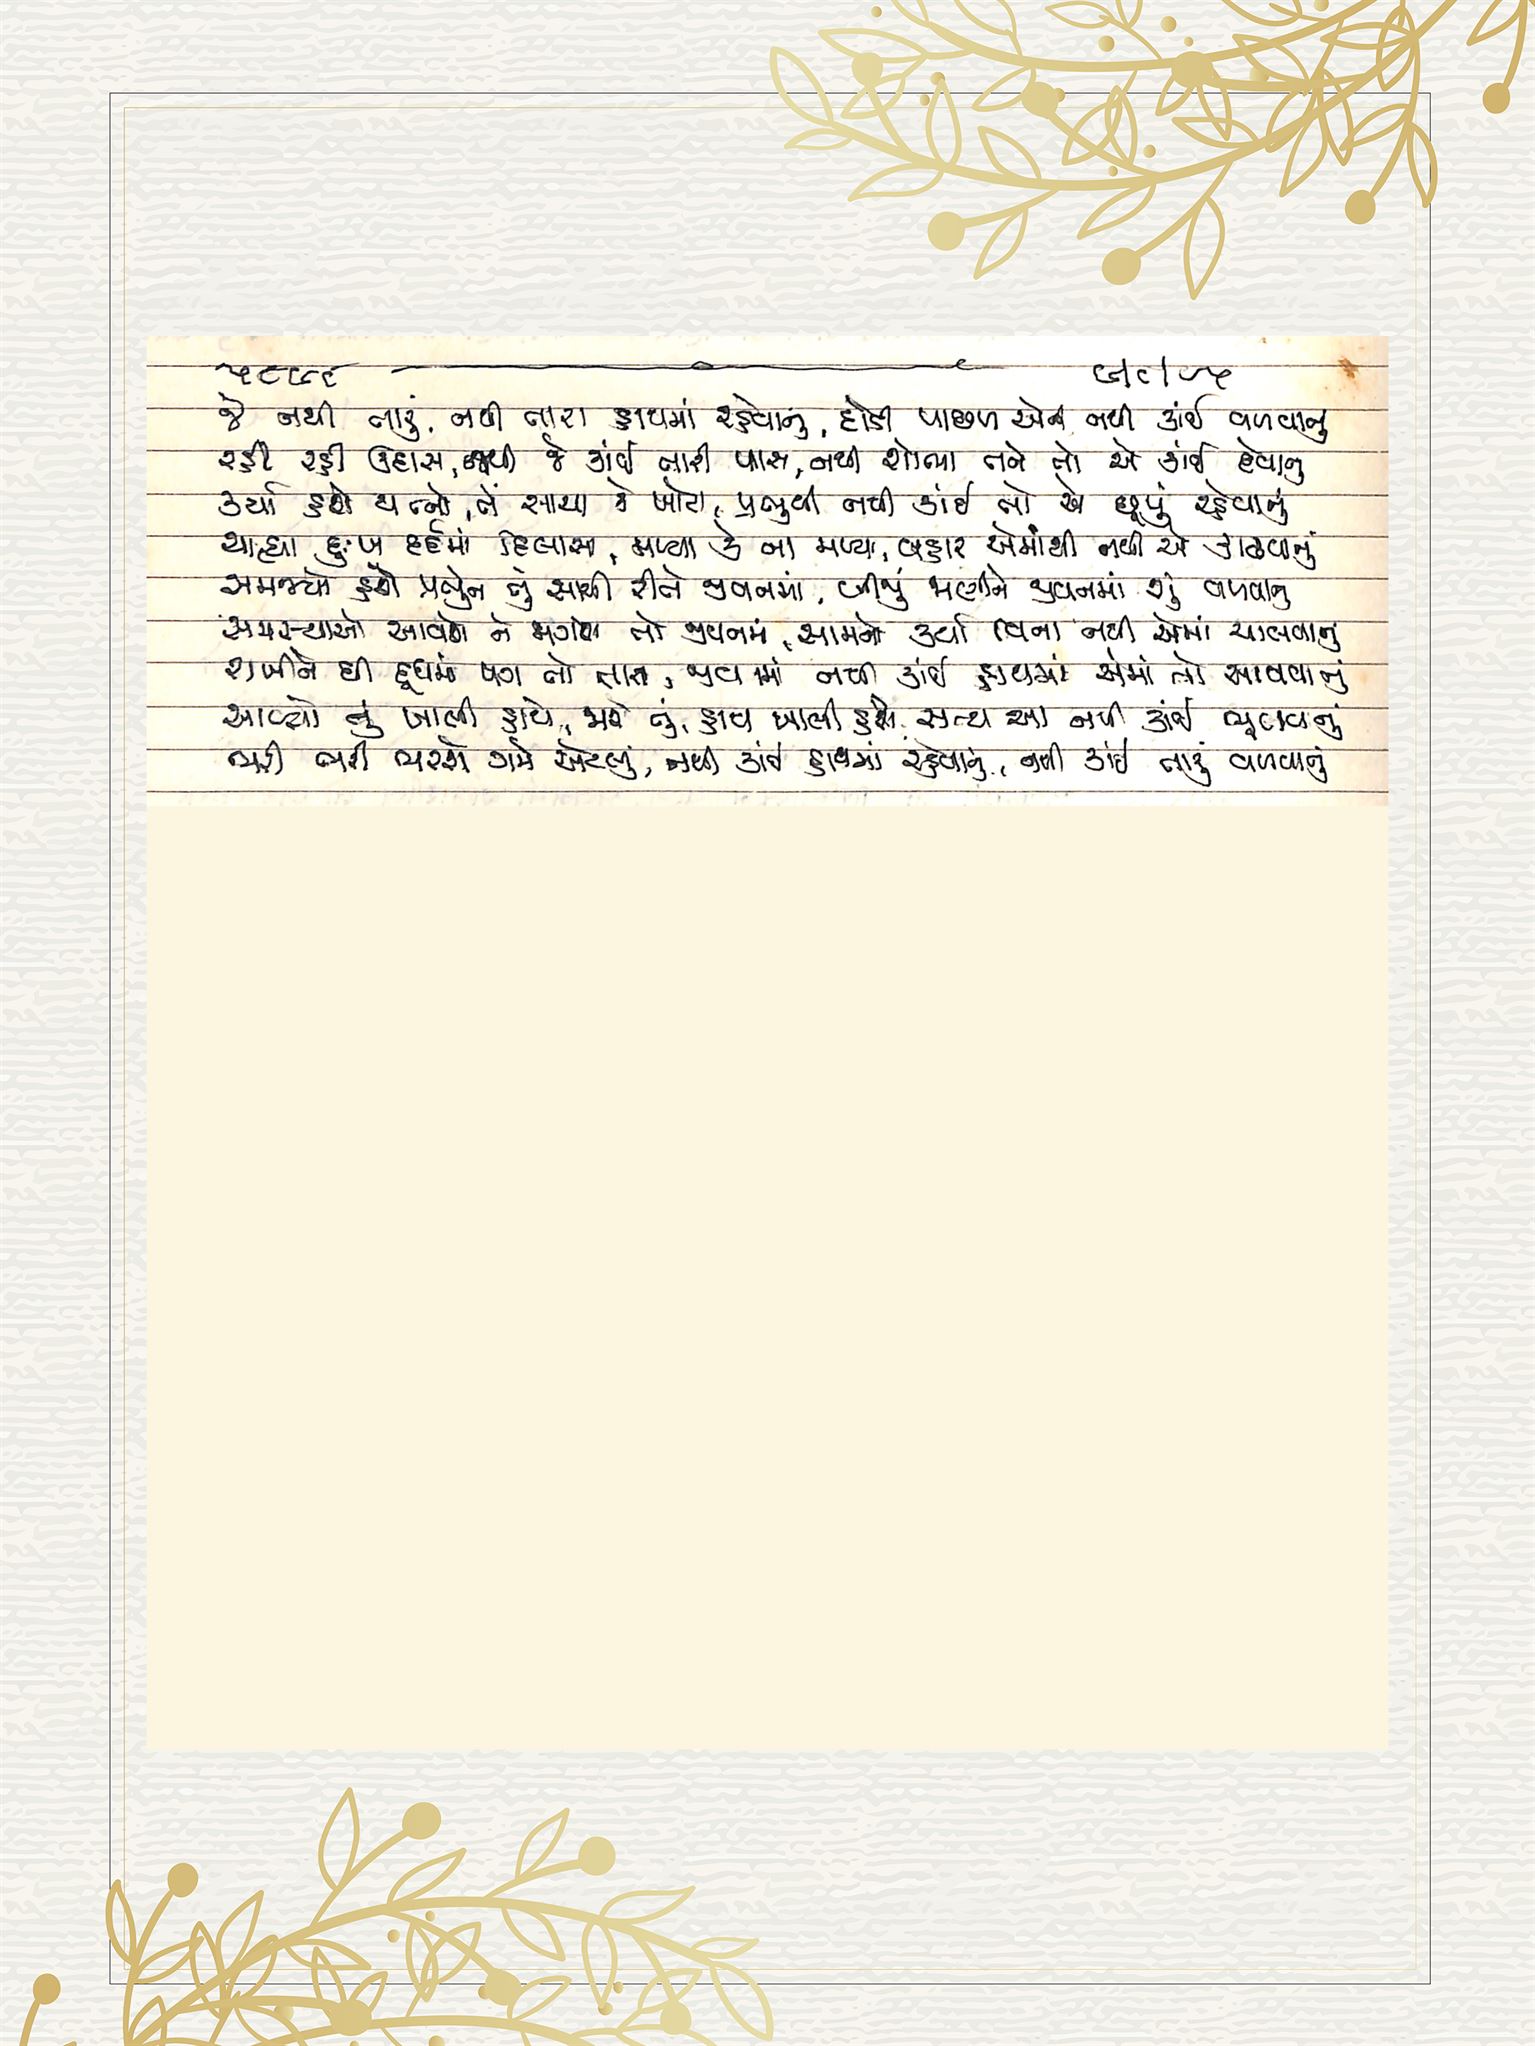 જે નથી તારું, નથી તારા હાથમાં રહેવાનું, દોડી પાછળ એની નથી કાંઈ વળવાનું
રહી રહી ઉદાસ, નથી જે કાંઈ તારી પાસ, નથી શોભા તને તો એ કાંઈ દેવાનું
કર્યા હશે યત્નો, તેં સાચા કે ખોટા, પ્રભુથી નથી કાંઈ તો એ છૂપું રહેવાનું
ચાહ્યા દુઃખ દર્દમાં દિલાસા, મળ્યા કે ના મળ્યા, બહાર એમાંથી નથી એ કાઢવાનું
સમજ્યો હશે પ્રભુને તું સાચી રીતે જીવનમાં, બીજું ભણીને જીવનમાં શું વળવાનું
સમસ્યાઓ આવશે ને જાગશે તો જીવનમાં, સામનો કર્યા વિના નથી એમાં ચાલવાનું
રાખીને ઘી દૂધમાં પગ તો તારા, જીવનમાં નથી કાંઈ હાથમાં એમાં તો આવવાનું
આવ્યો તું ખાલી હાથે, જાશે તું, હાથ ખાલી હશે, સત્ય આ નથી કાંઈ ભૂલવાનું
ભરી ભરી ભરશે ગમે એટલું, નથી કાંઈ હાથમાં રહેવાનું, નથી કાંઈ તારું વળવાનું